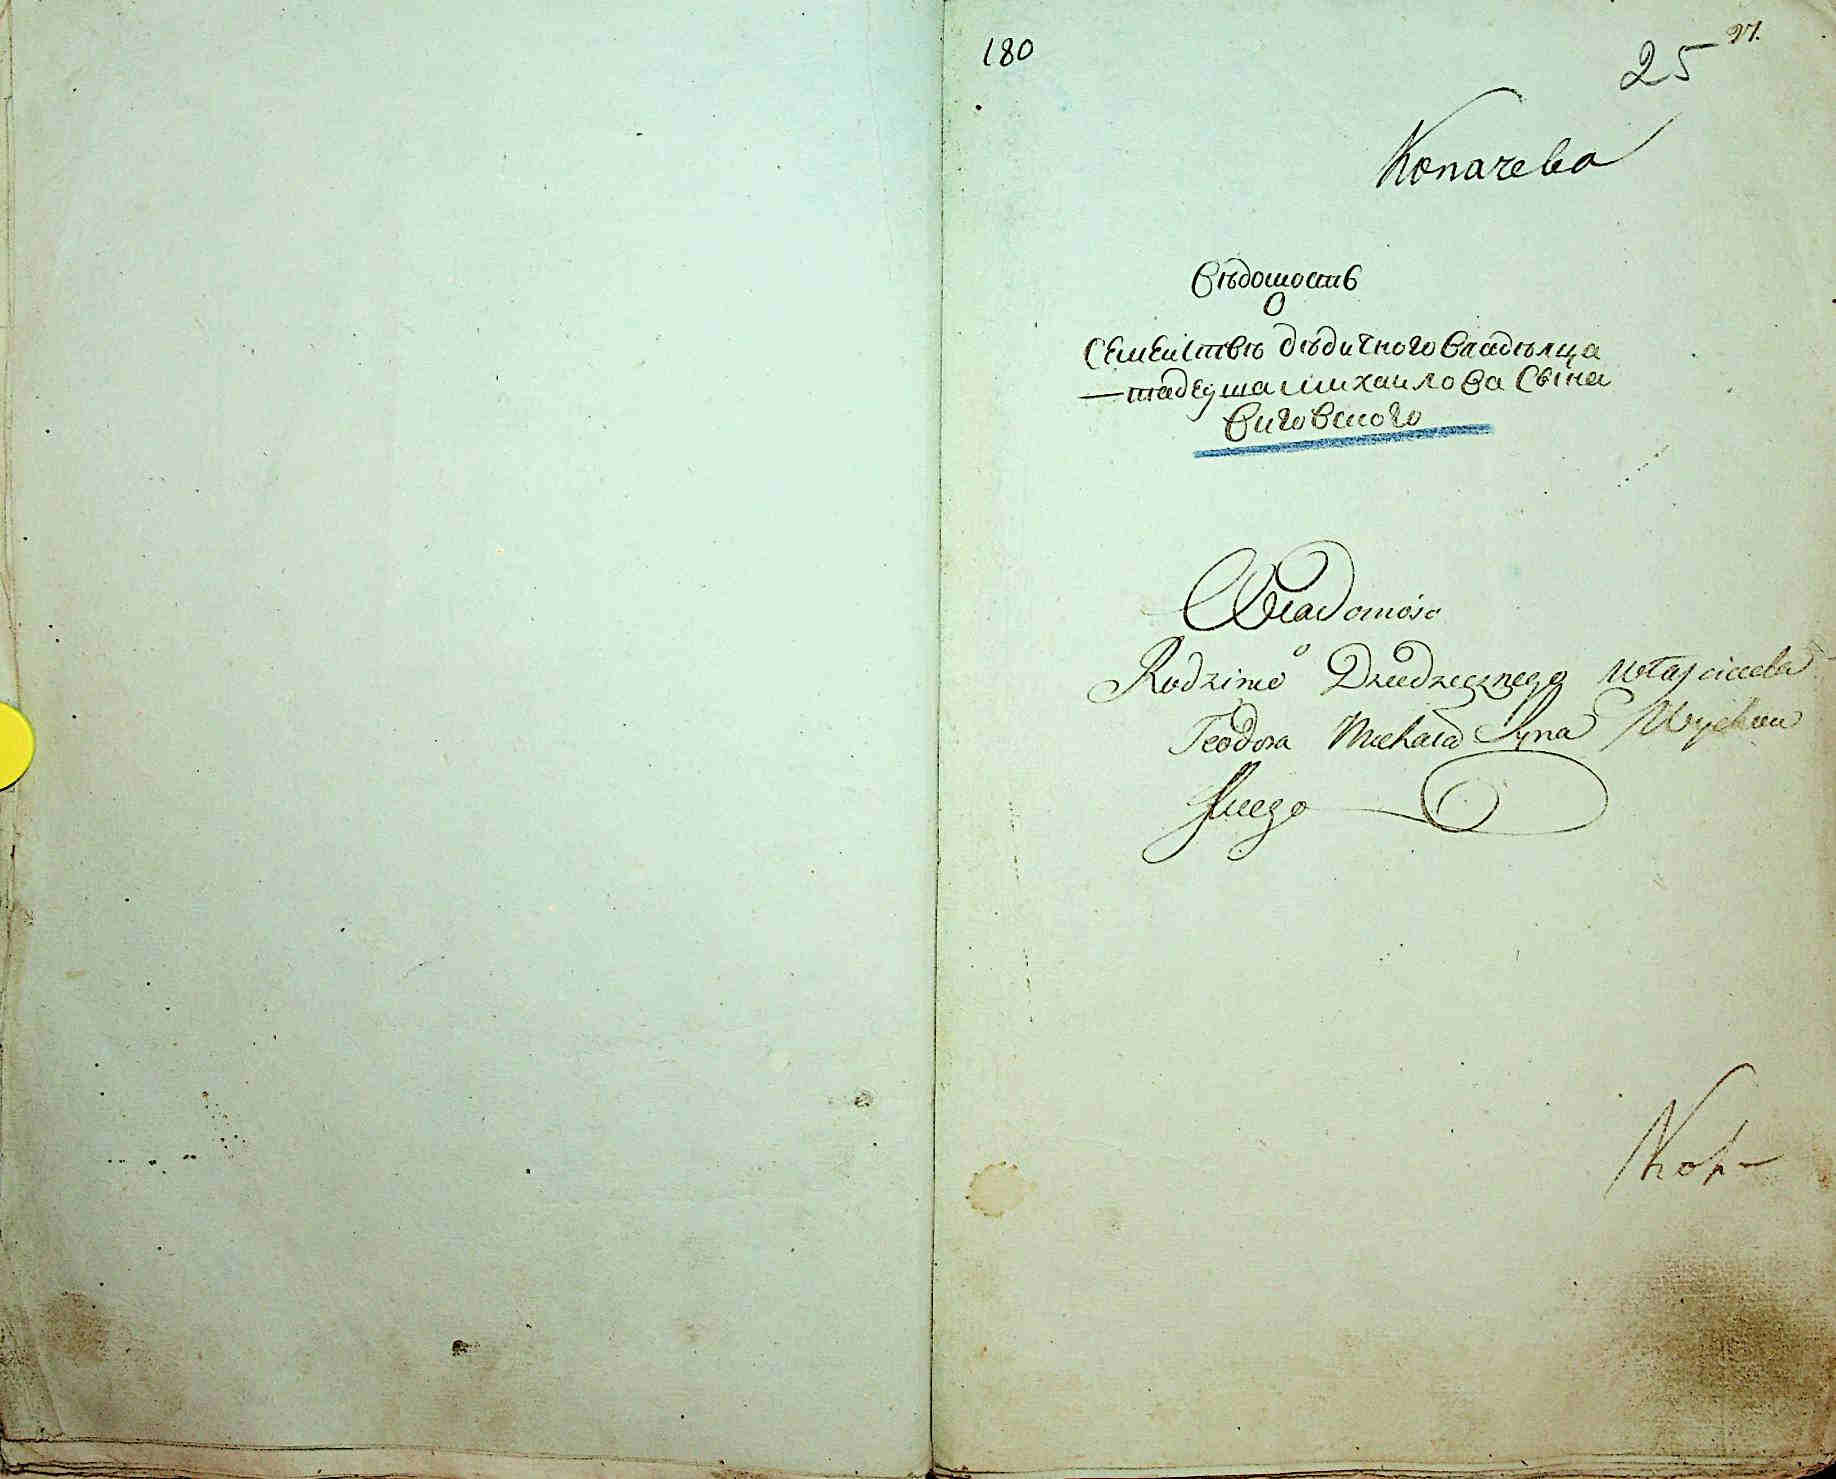 180
27.
25
Копачева
Вѣдомость
О
Семействѣ дѣдичного владѣлца
тадеуша михаилова сына
Виговского
Wiadomość
o
Rodzinie Dziedzicznego właściciela
Teodora Michała Syna Wyhow
skiego
Kop